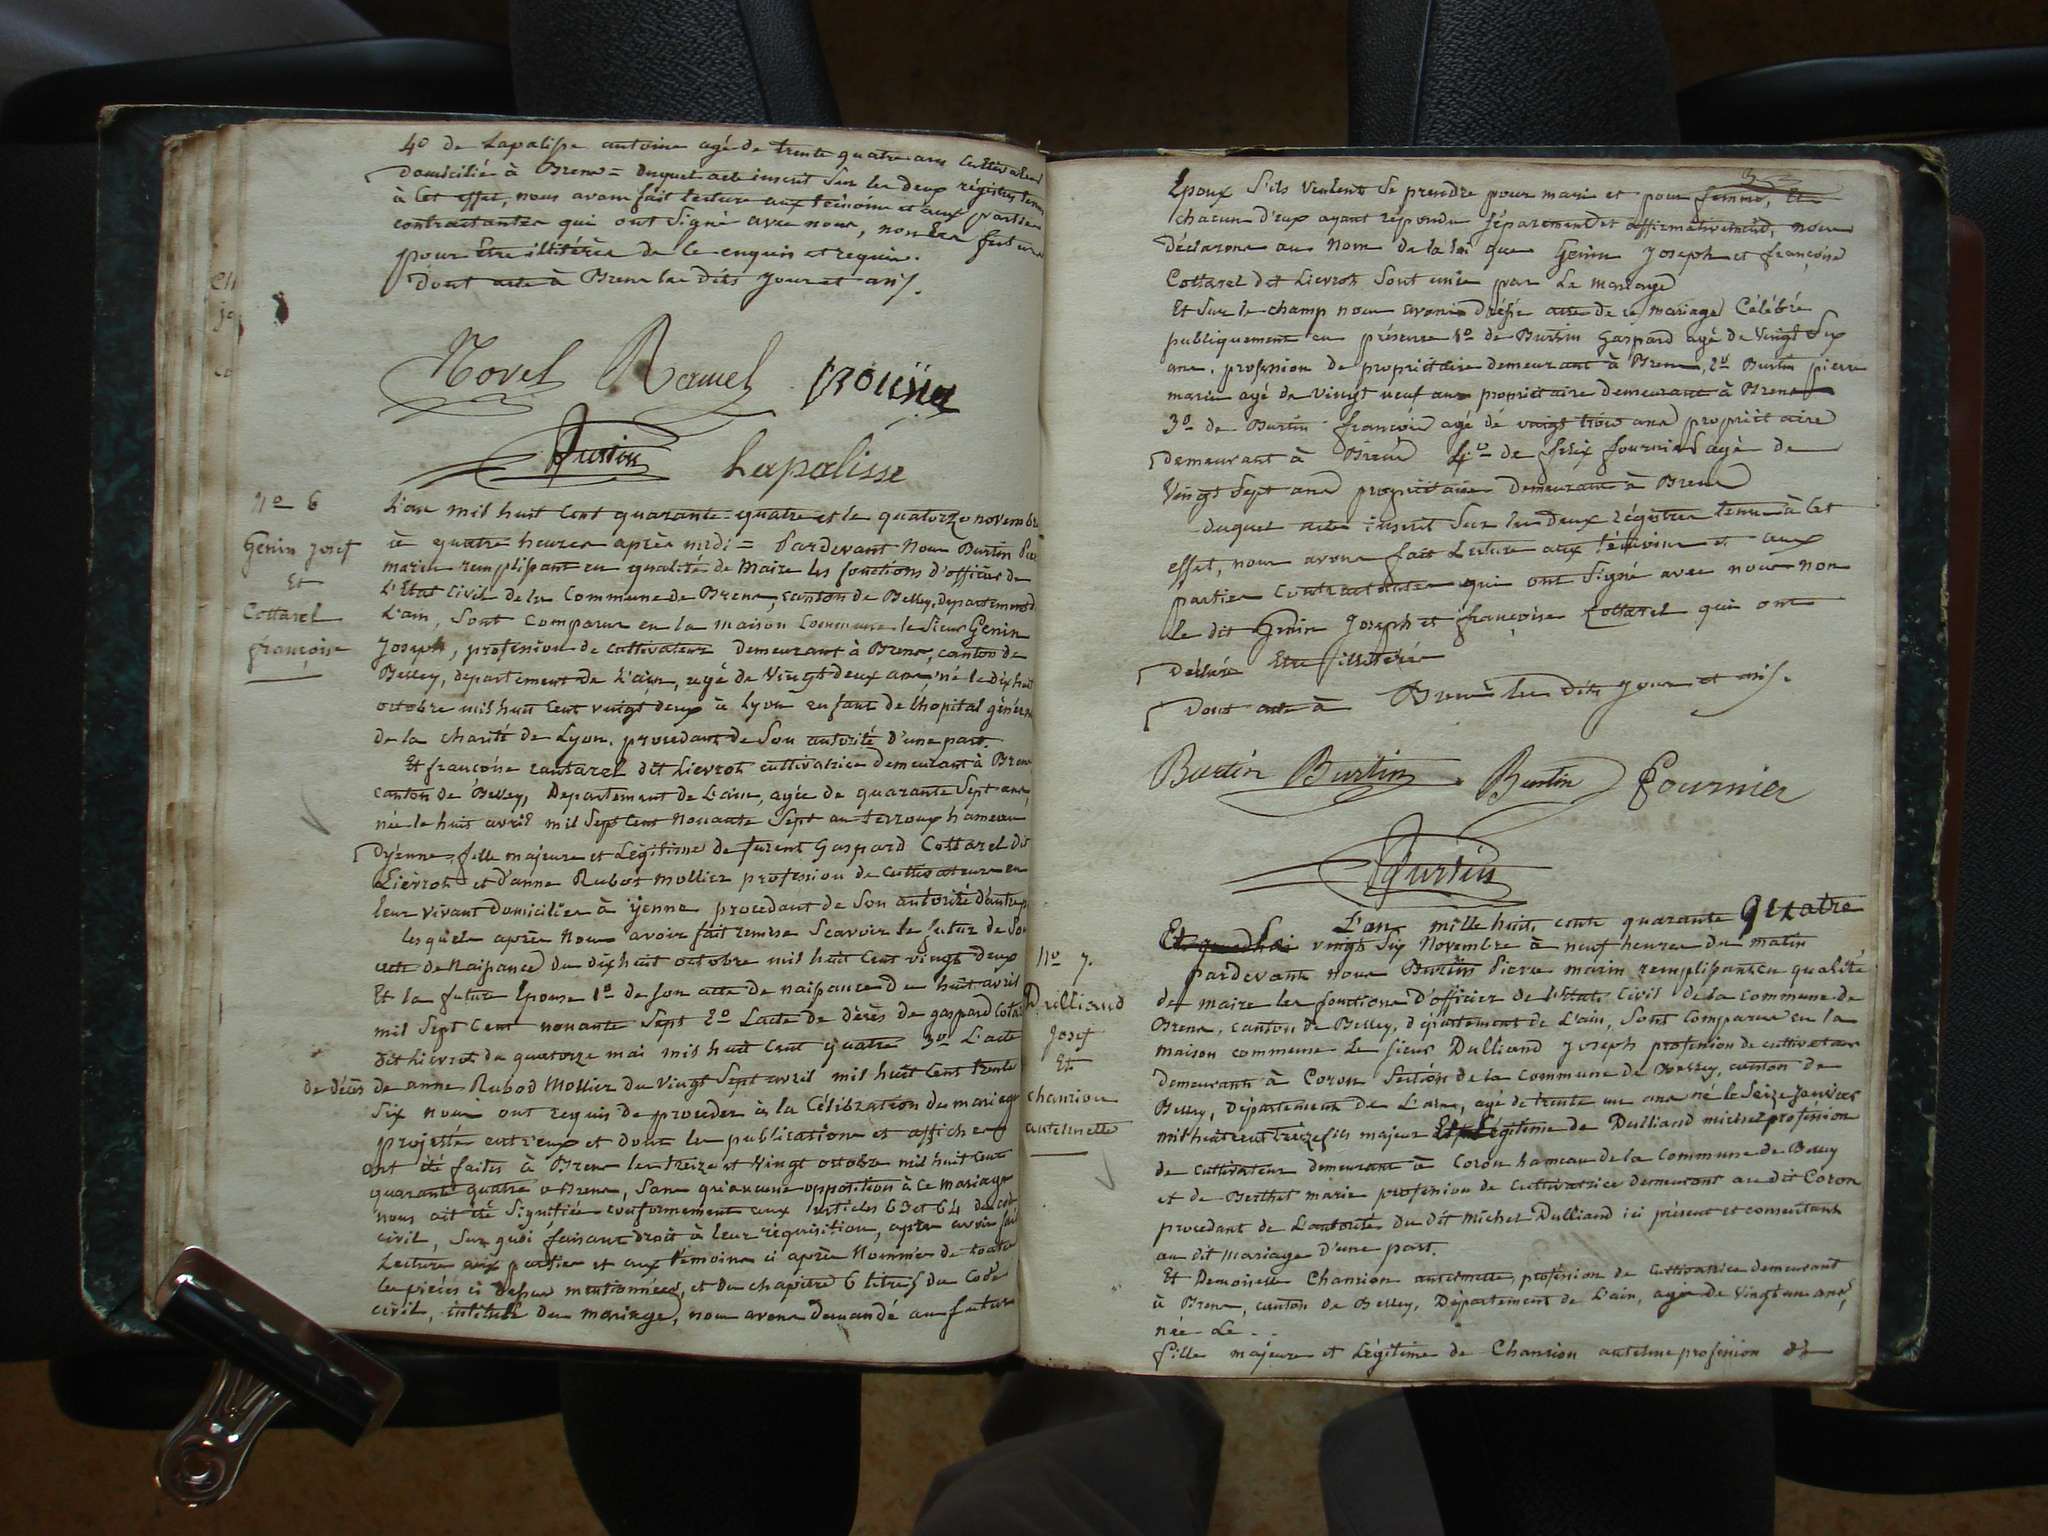 4o de Lapalisse antoine agé de trente quatre ans cultivateur
domicilié à Brens = duquel acte inscrit sur les deux régistres tenus
à cet effet, nous avons fait lecture aux témoins et aux parties
contractantes qui ont signé avec nous, non la future
pour être illitérée de ce enquis et requis.
Dont acte à Brens les dits jour et an.
Novel Ramel
Burtin Lapalisse
No 6
Genin Josef
Et
Cottarel
françoise
L'an mil huit cent quarante-quatre et le quatorze novembre
à quatre heures après midi = Pardevant Nous Burtin Pierre
marin remplissant en qualité de Maire les fonctions d'officier de
L'Etat civil de la Commune de Brens, canton de Belley, departement de
L'ain, sont comparus en la maison commune le sieur Genin
Joseph, profession de cultivateur demeurant à Brens, canton de
Belley, departement de L'ain, agé de Vingt deux ans, né le dix huit
octobre mil huit cent vingt deux à Lyon enfant de l'hopital général
de la charité de Lyon, procedant de son autorité d'une part.
Et françoise cautarel dit Lievroh cultivatrice demeurant à Brens
canton de Belley, Departement de L'ain, agée de quarante sept ans,
née le huit avril mil sept cent nonante sept au terroux hameau
D'yenne, fille majeure et Légitime de furent Gaspard Cottarel dit
Lievroh et d'anne Rubot mollier profession de cultivateurs en
leur vivant domiciliés à yenne procedant de son autorité d'autre part
lesquels après nous avoir fait remise Scavoir le futur de son
acte de Naissance du dix huit octobre mil huit cent vingt deux
Et la future Epouse 1o de son acte de naissance du huit avril
mil sept cent nonante sept 2o L'acte de décès de gaspard Cotarel
dit Lievrot du quatorze mai mil huit cent quatre 3o L'acte
de décès de anne Rubod Mollier du vingt sept avril mil huit cent trente
six nous ont requis de proceder à la célébration du mariage
projetté entr'eux et dont les publications et affiches
ont été faites à Brens les treize et vingt octobre mil huit cent
quarante quatre à Brens, sans qu'aucune opposition à ce mariage
nous ait été signifiée conformement aux articles 63 et 64 du code
civil, sur quoi faisant droit à leur réquisition, après avoir fait
Lecture aux parties et aux témoins ci après Nommés de toutes
les pièces ci dessus mentionnées, et du chapitre 6 titre 5 du Code
civil, intitulé du mariage, nous avons demandé au futur
Epoux s'ils veulent se prendre pour mari et pour femme, Et
chacun d'eux ayant répondu séparement et affirmativement, nous
déclarons au nom de la loi que Genin Joseph et françoise
Cottarel dit Lievroh sont unis par le mariage
Et sur le champ nous avons dréssé acte de ce mariage Célébré
publiquement en présence 1o de Burtin Gaspard agé de Vingt Six
ans, profession de propriétaire demeurant à Brens, 2o Burtin pierre
marin agé de vingt neuf ans propriétaire demeurant à Brens
3o de Burtin françois agé de vingt trois ans propriétaire
demeurant à Brens 4o de félix fournier agé de
Vingt Sept ans propriétaire demeurant à Brens
duquel acte inscrit sur les deux régistres tenus à cet
effet, nous avons fait Lecture aux témoins et aux
parties contractantes qui ont signé avec nous non
le dit Genin Joseph et françoise Cottarel qui ont
déclaré Etre illitérés
Dont acte à Brens les dits jour et an.
Burtin Burtin Burtin Fournier
Burtin
L'an mille huit cents quarante quatre
vingt Six Novembre à neuf heures du matin
No 7.
Dulliand
Josef
Et
chanrion
antelmette
pardevant nous Burtin Pierre marin remplissant en qualité
de maire les fonctions d'officier de l'Etat Civil de la commune de
Brens, canton de Belley, département de L'ain, sont comparus en la
maison commune Le sieur Dulliand Joseph profession de cultivateur
demeurants à Coron Section de la commune de Belley, canton de
Belley, Département de L'ain, agé de trente un ans né le Seize Janvier
mil huit cent treize fils majeur Et Légitime de Dulliand michel profession
de cultivateur demeurant à Coron hameau de la Commune de Belley
et de Berthet marie profession de cultivatrice demeurant au dit Coron
procedant de L'autorité du dit Michel Dulliand ici présent et consentant
au dit Mariage d'une part.
Et Demoiselle Chanrion antelmette profession de cultivatrice demeurant
à Brens, canton de Belley, Département de L'ain, agée de vingt un ans,
née Le . .
fille majeure et Légitime de Chanrion antelme profession de